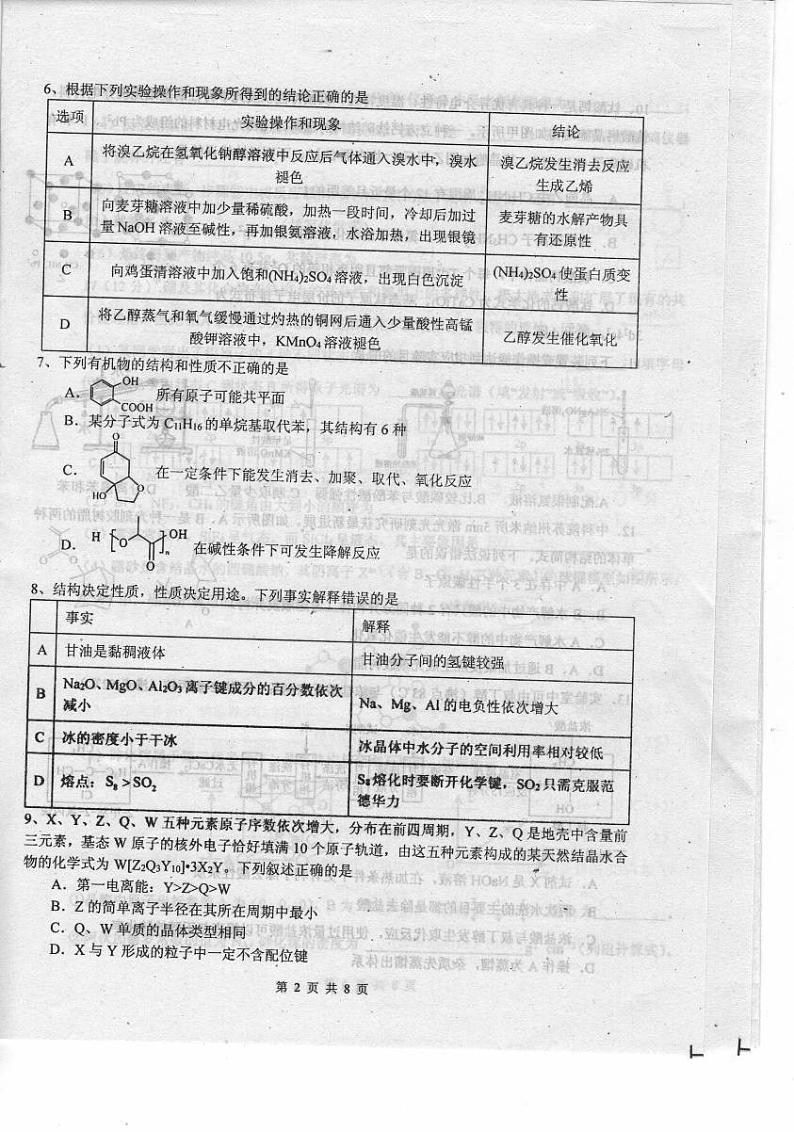 6、根据下列实验操作和现象所得到的结论正确的是
选项 实验操作和现象 结论
A 将溴乙烷在氢氧化钠醇溶液中反应后气体通入溴水中，溴水褪色 溴乙烷发生消去反应生成乙烯
B 向麦芽糖溶液中加少量稀硫酸，加热一段时间，冷却后加过量 NaOH 溶液至碱性，再加银氨溶液，水浴加热，出现银镜 麦芽糖的水解产物具有还原性
C 向鸡蛋清溶液中加入饱和(NH₄)₂SO₄ 溶液，出现白色沉淀 (NH₄)₂SO₄ 使蛋白质变性
D 将乙醇蒸气和氧气缓慢通过灼热的铜网后通入少量酸性高锰酸钾溶液中，KMnO₄ 溶液褪色 乙醇发生催化氧化
7、下列有机物的结构和性质不正确的是
A. OH COOH 所有原子可能共平面
B．某分子式为 C₁₁H₁₆ 的单烷基取代苯，其结构有 6 种
C. O HO O 在一定条件下能发生消去、加聚、取代、氧化反应
D. H [O O]ₙ OH 在碱性条件下可发生降解反应
8、结构决定性质，性质决定用途。下列事实解释错误的是
事实 解释
A 甘油是黏稠液体 甘油分子间的氢键较强
B Na₂O、MgO、Al₂O₃ 离子键成分的百分数依次减小 Na、Mg、Al 的电负性依次增大
C 冰的密度小于干冰 冰晶体中水分子的空间利用率相对较低
D 熔点：S₈ > SO₂ S₈ 熔化时要断开化学键，SO₂ 只需克服范德华力
9、X、Y、Z、Q、W 五种元素原子序数依次增大，分布在前四周期，Y、Z、Q 是地壳中含量前
三元素，基态 W 原子的核外电子恰好填满 10 个原子轨道，由这五种元素构成的某天然结晶水合
物的化学式为 W[Z₂Q₃Y₁₀]•3X₂Y。下列叙述正确的是
A．第一电离能：Y>Z>Q>W
B．Z 的简单离子半径在其所在周期中最小
C．Q、W 单质的晶体类型相同
D．X 与 Y 形成的粒子中一定不含配位键
第 2 页 共 8 页